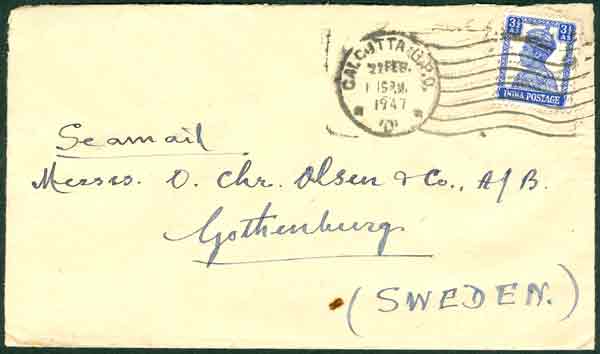 3½ AS 3½ AS
INDIA POSTAGE
CALCUTTA G.P.O.
FEB.
1947
Seamail
Messrs. O. Chr. Olsen & Co., A/B.
Gothenburg
(SWEDEN.)